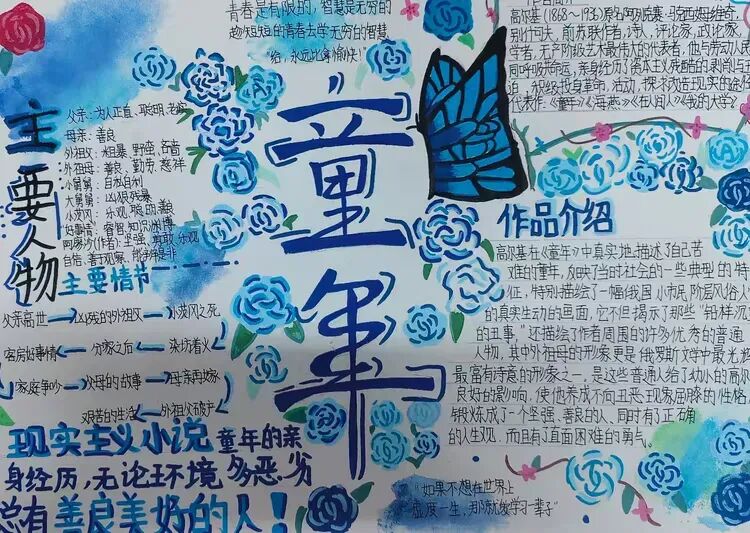 青春是有限的,智慧是无穷的
趁短短的青春去学无穷的智慧
"给,永远比拿愉快!"
童年
主要人物
父亲:为人正直、聪明、老实
母亲:善良
外祖父:粗暴、野蛮、吝啬
外祖母:善良、勤劳、慈祥
小舅舅:自私自利
大舅舅:凶狠残暴
小茨冈:乐观、聪明、善良
好事情:睿智、知识渊博
阿廖沙(作者):坚强、勇敢、乐观
自信、善于观察、能明辨是非
主要情节
父亲离世 凶残的外祖父 小茨冈之死
客房好事情 分家之后 染坊着火
家庭争吵 父母的故事 母亲再嫁
艰苦的生活 外祖父破产
现实主义小说 童年的亲
身经历,无论环境多恶劣
总有善良美好的人!
高尔基(1868~1936)原名阿列克赛·
别什科夫,前苏联作家,诗人,评论家,政论家,
学者,无产阶级艺术最伟大的代表者,他与劳动人民
同呼吸共命运,亲身经历了资本主义残酷的剥削与
迫,积极投身革命活动,探求改造现实的途径
代表作:《童年》《海燕》《在人间》《我的大学》
作品介绍
高尔基在《童年》中真实地描述了自己苦
难的童年,反映了当时社会的一些典型的特
征,特别描绘了一幅俄国小市民阶层风俗人
的真实生动的画面,它不但揭示了那些"铅样沉
的丑事,"还描绘了作者周围的许多优秀的普通
人物,其中外祖母的形象更是俄罗斯文学中最光
最富有诗意的形象之一,是这些普通人给了幼小的高尔
良好的影响,使他养成不向丑恶现象屈膝的性格,
锻炼成了一个坚强、善良的人、同时有了正确
的人生观,而且有了直面困难的勇气。
"如果不想在世界上
虚度一生,那就要学习一辈子"